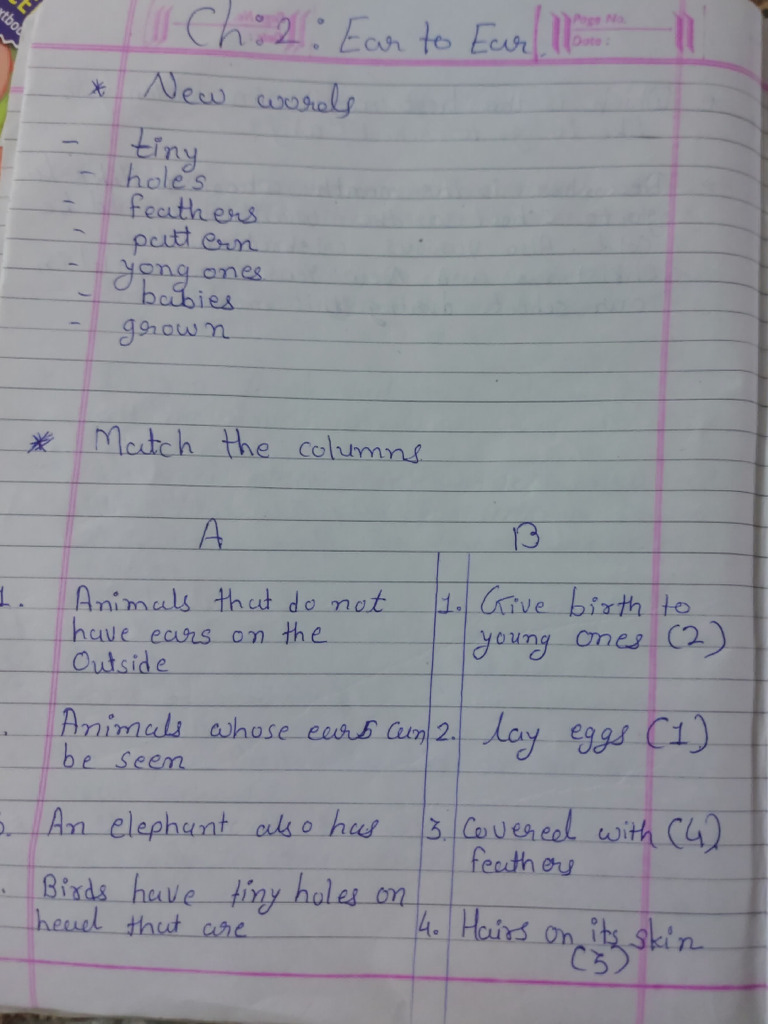 Ch:2: Ear to Ear
Page No.
Date:
* New words
- tiny
- holes
- feathers
- pattern
- yong ones
- babies
- grown
* Match the columns
A B
1. Animals that do not 1. Give birth to
have ears on the young ones (2)
Outside
. Animals whose ears can 2. lay eggs (1)
be seen
3. An elephant also has 3. Covered with (4)
feathers
. Birds have tiny holes on
head that are 4. Hairs on its skin
(3)